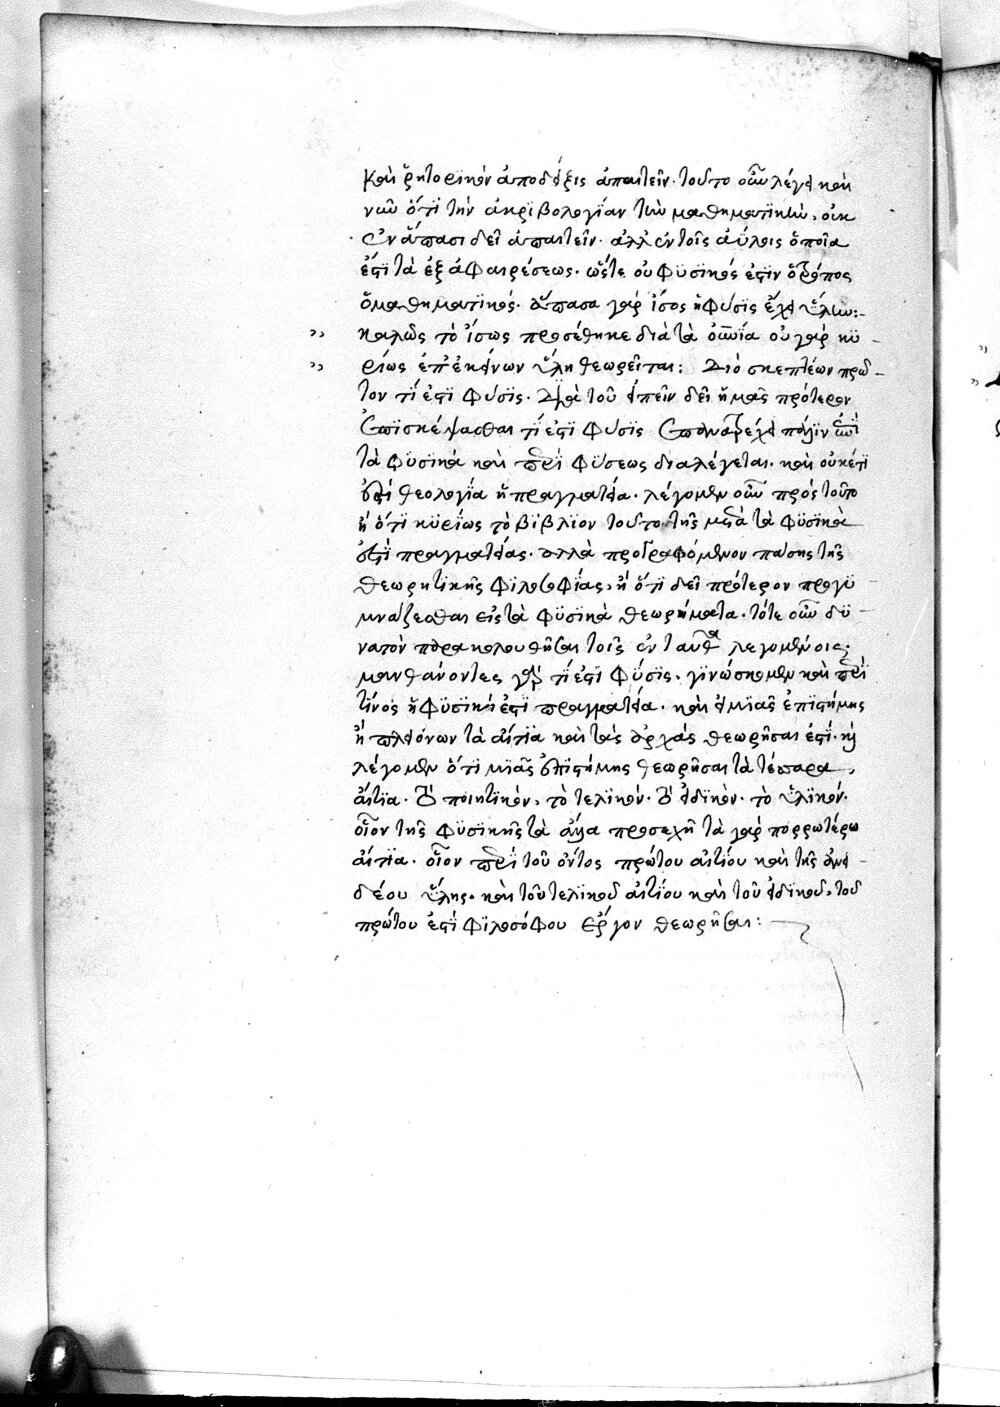 καὶ ῥητορικὸν ἀποδείξεις ἀπαιτεῖν. τοῦτο οὖν λέγει καὶ
νῦν ὅτι τὴν ἀκριβολογίαν τῶν μαθηματικῶν, οὐκ
ἐν ἅπασι δεῖ ἀπαιτεῖν. ἀλλ' ἐν τοῖς ἀΰλοις ὁποῖα
ἐστὶ τὰ ἐξ ἀφαιρέσεως. ὥστε οὐ φυσικός ἐστιν ὁ τρόπος
ὁ μαθηματικός. ἅπασα γὰρ ἴσως ἡ φύσις ἔχει ὕλην:
» καλῶς τὸ ἴσως προσέθηκε διὰ τὰ οὐράνια οὐ γὰρ κυ
» ρίως ἐπ' ἐκείνων ὕλη θεωρεῖται: Διὸ σκεπτέων πρῶ
τον τί ἐστι φύσις. Διὰ τοῦ εἰπεῖν δεῖ ἡμᾶς πρότερον
ἐπισκέψασθαι τί ἐστι φύσις ἐπανατρέχει πάλιν ἐπὶ
τὰ φυσικὰ καὶ περὶ φύσεως διαλέγεται. καὶ οὐκέτι
ἐστὶ θεολογία ἡ πραγματεία. λέγομεν οὖν πρὸς τοῦτο
ἢ ὅτι κυρίως τὸ βιβλίον τοῦτο τῆς μετὰ τὰ φυσικὰ
ἐστὶ πραγματείας. ἀλλὰ προγραφόμενον πάσης τῆς
θεωρητικῆς φιλοσοφίας, ἢ ὅτι δεῖ πρότερον προγυ
μνάζεσθαι εἰς τὰ φυσικὰ θεωρήματα. τότε οὖν δυ
νατὸν παρακολουθῆσαι τοῖς ἐνταῦθα λεγομένοις.
μανθάνοντες γὰρ τί ἐστι φύσις. γινώσκομεν καὶ περὶ
τίνος ἡ φυσική ἐστι πραγματεία. καὶ εἰ μιᾶς ἐπιστήμης
ἢ πλειόνων τὰ αἴτια καὶ τὰς ἀρχὰς θεωρῆσαι ἐστί. καὶ
λέγομεν ὅτι μιᾶς ἐπιστήμης θεωρῆσαι τὰ τέσσαρα
αἴτια. τὸ ποιητικὸν, τὸ τελικόν. τὸ εἰδικὸν. τὸ ὑλικόν.
οἷον τῆς φυσικῆς τὰ αἴτια προσεχῆ τὰ γὰρ πορρωτέρω
αἴτια. οἷον περὶ τοῦ ὄντος πρώτου αἰτίου καὶ τῆς ἀνει
δέου ὕλης. καὶ τοῦ τελικοῦ αἰτίου καὶ τοῦ εἰδικοῦ. τοῦ
πρώτου ἐστὶ φιλοσόφου ἔργον θεωρῆσαι: